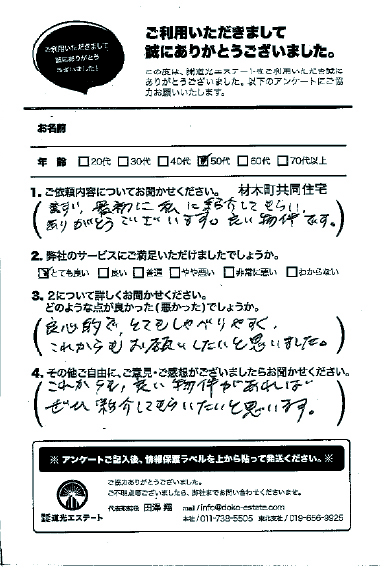 ご利用いただきまして
誠にありがとう
ございました！
ご利用いただきまして
誠にありがとうございました。
この度は、㈱道光エステートをご利用いただき誠に
ありがとうございました。以下のアンケートにご協
力お願いいたします。
お名前
年 齢 □20代 □30代 □40代 ☑50代 □60代 □70代以上
1. ご依頼内容についてお聞かせください。 材木町共同住宅
まずい、最初に私に紹介してもらい、
ありがとうございます。良い物件です。
2. 弊社のサービスにご満足いただけましたでしょうか。
☑とても良い □良い □普通 □やや悪い □非常に悪い □わからない
3. 2について詳しくお聞かせください。
どのような点が良かった(悪かった)でしょうか。
良心的で、とてもしゃべりやすく、
これからもお願いしたいと思いました。
4. その他ご自由に、ご意見・ご感想がございましたらお聞かせください。
これからも、良い物件があれば
ぜひ紹介してもらいたいと思います。
※ アンケートご記入後、情報保護ラベルを上から貼って発送ください。※
ご協力ありがとうございました。
ご不明点等ございましたら、弊社までお問い合わせくださいませ。
代表取締役 田澤 翔 mail / info@doko-estate.com
株式会社道光エステート 本社 / 011-738-5505 東北支社 / 019-656-9925